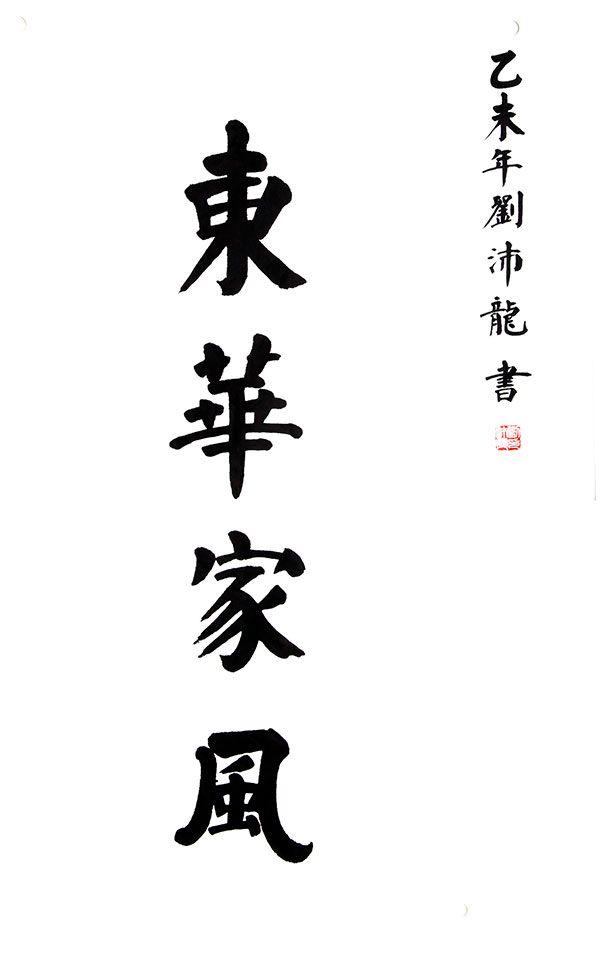 乙未年劉沛龍書
東華家風